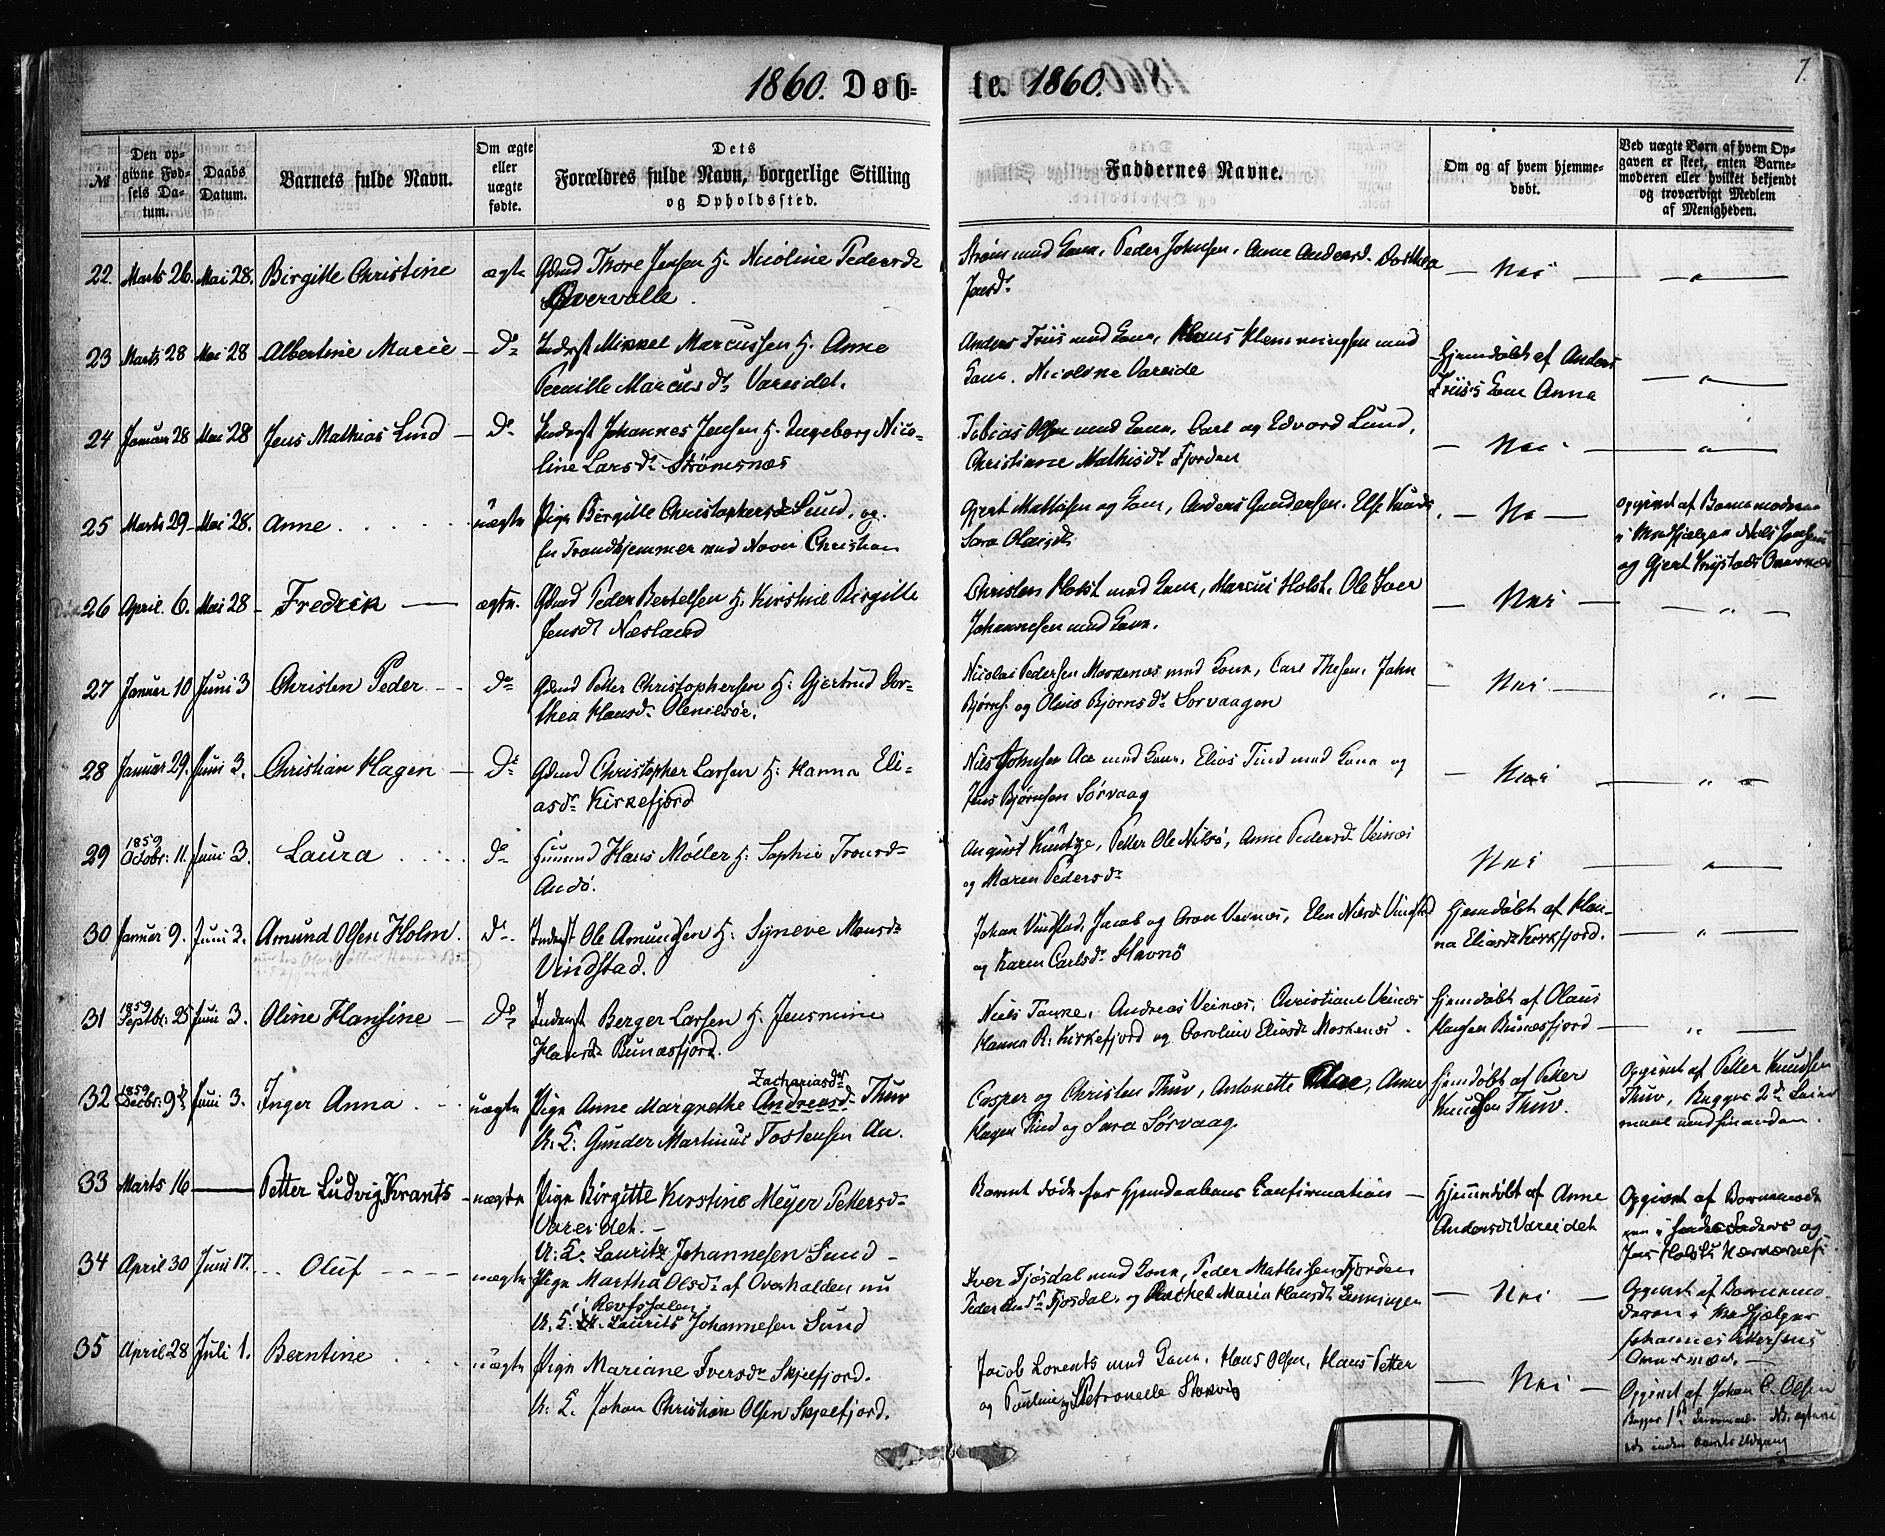 1860. Døb-
te. 1860.
7.
№
Den op-
givne Fød-
sels Da-
tum.
Daabs
Datum.
Barnets fulde Navn.
Om ægte
eller
uægte
fødte.
Dets
Forældres fulde Navn, borgerlige Stilling
og Opholdssted.
Faddernes Navne.
Om og af hvem hjemme-
døbt.
Ved uægte Børn af hvem Op-
gaven er skeet, enten Barne-
moderen eller hvilket bekjendt
og troværdigt Medlem
af Menigheden.
22. Marts 26. Mai 28. Birgitte Christine ægte Gdmd Thore Jensen H. Nicoline Pedersdr
Øvervolle.
Strøm med Kone, Peder Johnsen, Anne Andersd. Dorthea
Jensdr
— Nei —
23 Marts 28 Mai 28 Albertine Marie — Do Inderst Mikkel Marcussen H. Anne
Pernille Marcusdr Vareidet.
Anders Friis med Kone, Klaus Klemmingsen med
Kone. Nicoline Vareide
Hjemdøbt af Anders
Friis's Kone Anna
24 Januar 28 Mai 28 Jens Mathias Lind — Do Inderst Johannes Jensen H. Ingeborg Nico-
line Larsdr Strømsnæs
Tobias Olsen med Kone, Carl og Edvard Lund,
Christianne Mathisdr Fjorden
— Nei —
25 Marts 29 — Mai 28. Anne. uægte Pige Birgitte Christophersdr Sund, og
en Trondhjemmer med Navn Christian
Gjert Mathisen og Kone, Anders Gundersen. Else Knudsd.
Sara Olaisdr
— Ne —
Opgivet af Barnemoderen
og Gjert
26 April. 6. Mai 28 — Fredrik — ægte. Gdmd Peder Bertelsen H. Kirstine Birgitte
Jensdr Næsland
Christen Holst med Kone, Marcus Holst, Ole Hoer
Johannesen med Kone.
— Nei —
27 Januar 10 Juni 3 Christen Peder — Do Gdmd Petter Christophersen H. Gjertrud Dor-
thea Hansdr Olenilsøe.
Nicolai Pedersen Moskenæs med Kone, Carl Thesen, John
Bjørns. og Oline Bjørnsdr Sørvaagen
— Nei. —
28 Januar 29. Juni 3. Christian Hagen — Do Gdmd Christopher Larsen H. Hanna Eli-
asdr Kirkefjord
Nils Johnsen Aa med Kone, Elias Tind med Kone og
Jens Bjørnsen Sørvaag
— Nei
29 1859 Octobr: 11. Juni 3. Laura Do Huusmd Hans Møller H. Sophie Tronsdr
Andø.
August Küntze, Petter Ole Nilsø, Anne Pedersdr Veinæs
og Maren Pedersdr
Nei
30 Januar 9. Juni 3. Amund Olsen Holm. Do. Inderst Ole Amundsen H. Synneve Monsdr
Vindstad.
Johan Vindstad, Jacob og Aron Veinæs, Elen Nilsdr Vindstad
og Karen Carlsdr Havnø
Hjemdøbt af Han-
na Eliasdr Kirkfjord.
31 1859 Septbr: 25 Juni 3. Oline Hansine — Do Inderst Berger Larsen H. Jensmine
Hansdr Bunæsfjord.
Niels Tanke, Andreas Veinæs, Christiane Veinæs
Hanna R. Kirkefjord og Caroline Eliasdr Moskenæs.
Hjemdøbt af Olaus
Hansen Bunæsfjord —
32 1859 Decbr: 9de Juni 3. Inger Anna. uægte Pige Anne Margrethe Zachariasdr Andreasd. Thuv
U. F. Gunder Martinus Tostensen Aa.
Casper og Christen Thuv, Antonette Aae, Anne
Hagen Tind og Sara Sørvaag.
Hjemdøbt af Petter
Knudsen Thuv.
Opgivet af Petter Knudsen
Thuv, Begges 2de Leier
maal med hinanden.
33 Marts 16 — Petter Ludvig Krants — uægte Pige Birgitte Kirstine Meyer Pettersdr
Vareidet. —
U. F. Lauritz Johannesen Sund —
Barnet døde før Hjemdaabens Confirmation —
Hjemmdøbt af Anne
Andersdr Vareidet
Opgivet af Barnemode
ren og
34 April 30 Juni 17. Oluf — uægte Pige Martha Olsdr af Overhalden nu
i Revfshalen
U. F. Laurits Johannesen Sund
Iver Fjøsdal med Kone, Peder Mathisen Fjorden
Fjøsdal. og Rachel Maria Hansdr
— Nei —
Opgivet af Barnemo
deren og Medhjelper
Johannes Pettersens
35 April 28 Juli 1. Berntine uægte Pige Mariane Iversdr Skjelfjord.
U. F. Johan Christian Olsen Skjelfjord.
Jacob Lorents med Kone, Hans Olsen, Hans Petter
og Pauline Petronelle
— Nei —
Opgivet af Johan C. Olsen
Begges 1ste Leiermaal.